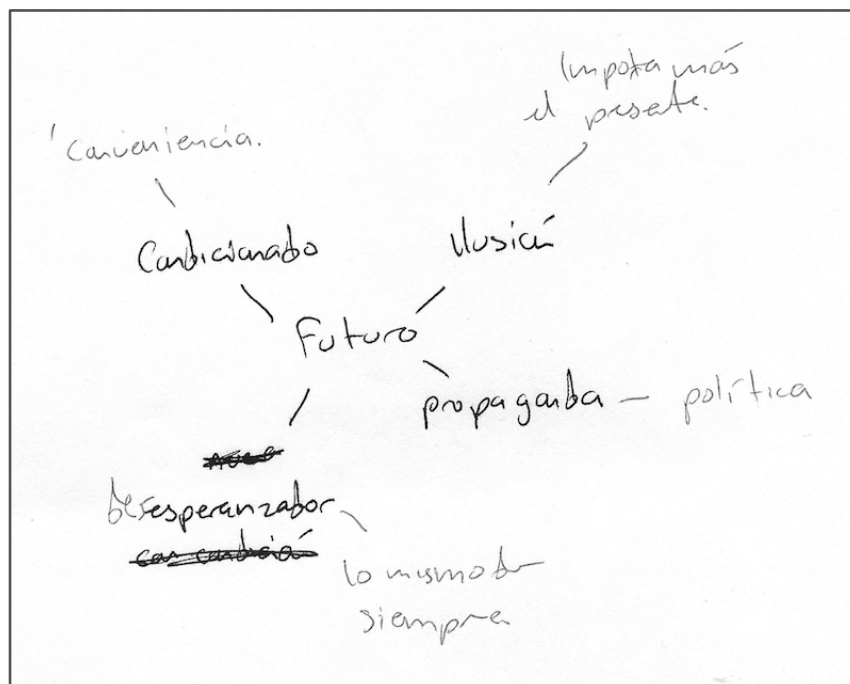 Importa más
el presente.
Conveniencia.
Condicionado
Ilusión
Futuro
propaganda — política
desesperanzador
con condición
lo mismo de
siempre